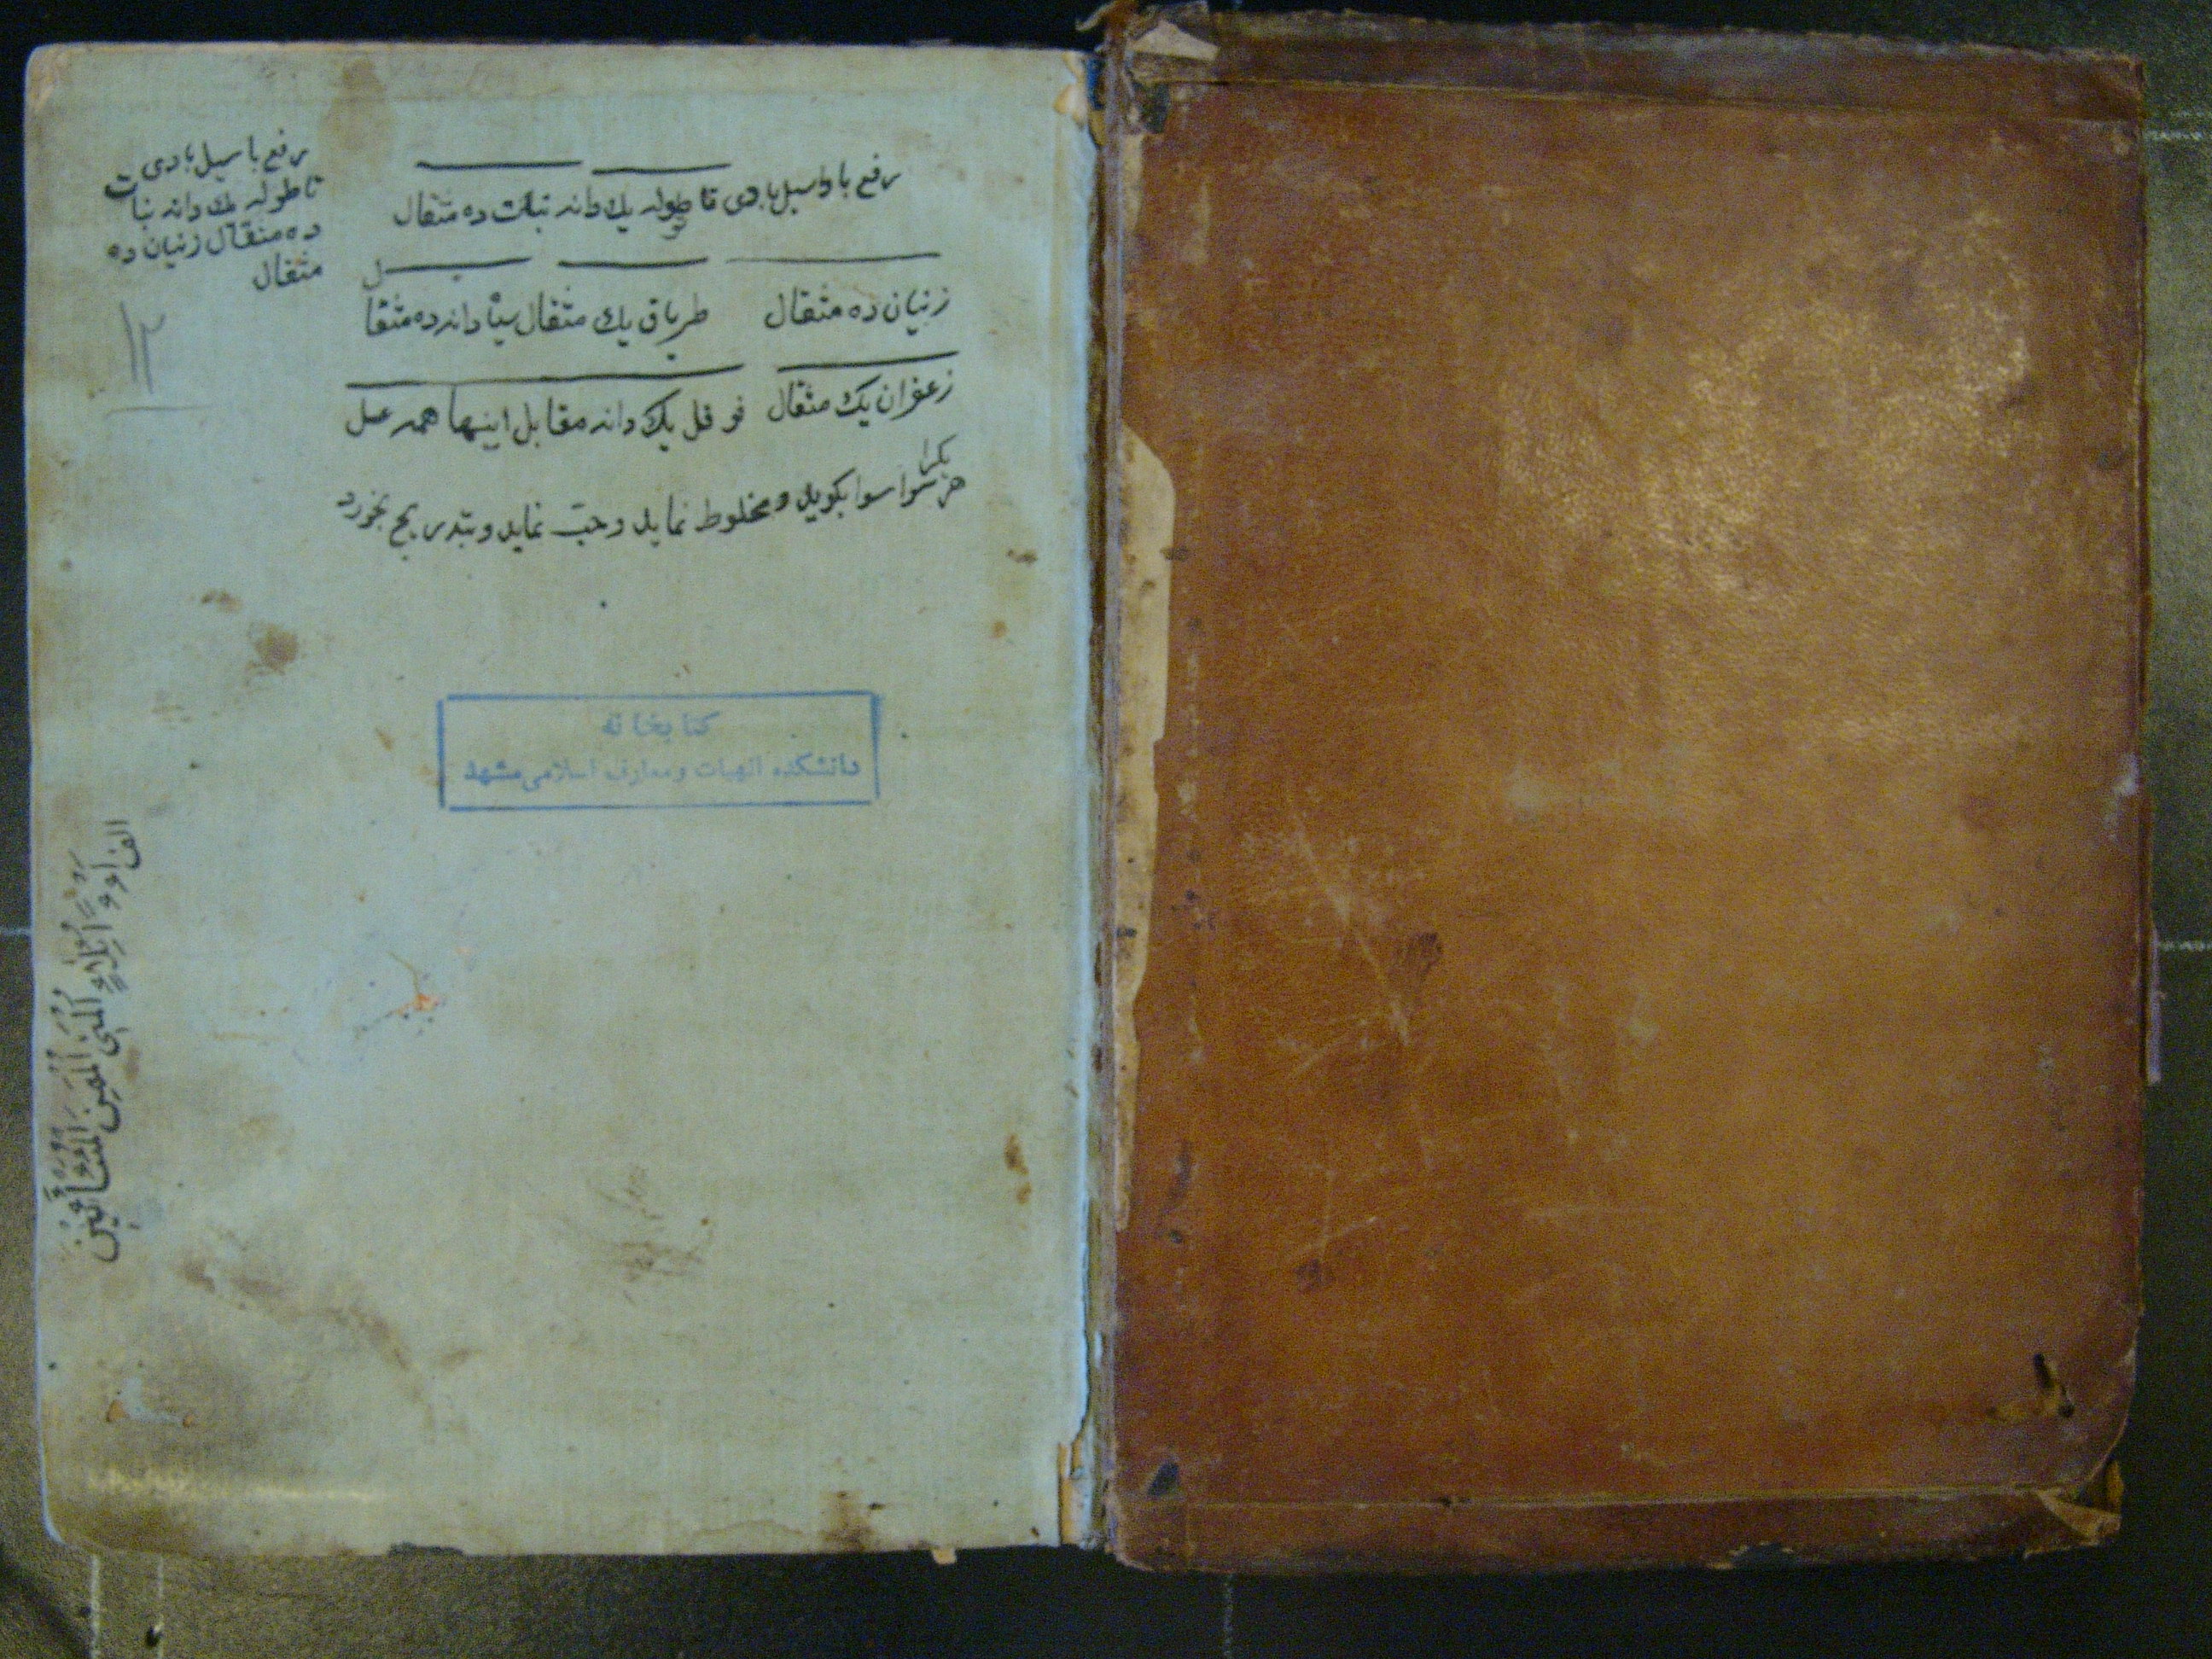 رفع باواسیل بادی تا طوله یک دانه نبات ده مثقال
زنیان ده مثقال طریاق یک مثقال سیاه دانه ده مثقال
زعفران یک مثقال فوفل یک دانه مقابل اینها همه عسل
هر یکرا سوا سوا بکوبد و مخلوط نماید و حب نماید و بتدریج بخورد
رفع باسیل بادی
تا طوله یک دانه نبات
ده مثقال زنیان ده
مثقال
۱۲
کتابخانه
دانشکده الهیات و معارف اسلامی مشهد